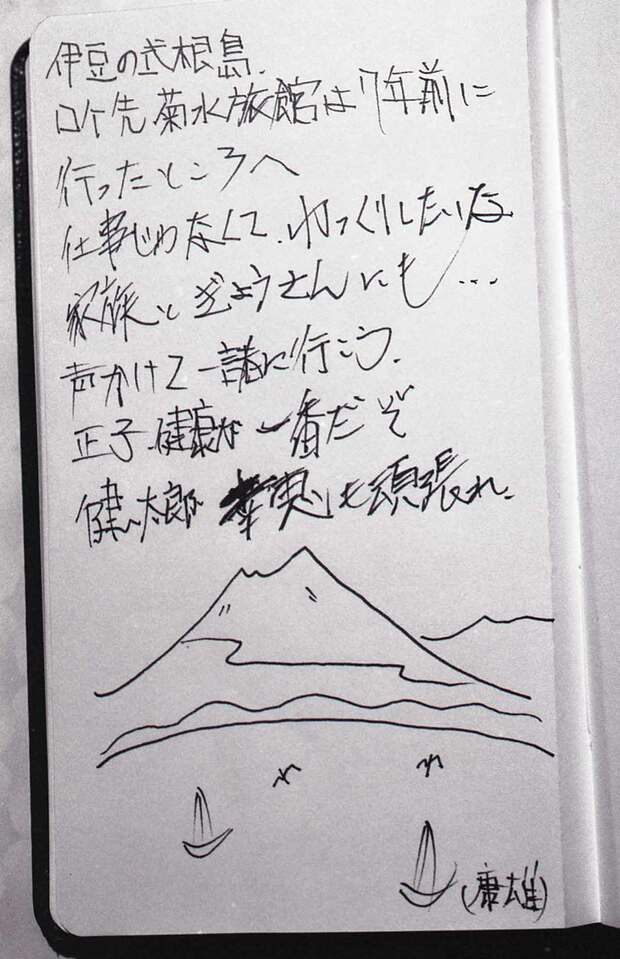 伊豆の式根島.
ロケ先菊水旅館は7年前に
行ったところへ
仕事じゃなくて、ゆっくりしたいな
家族と ぎょうさんにも…
声かけて一諸に行こう.
正子 健康が一番だぞ
健太郎 恵も頑張れ.
(康雄)